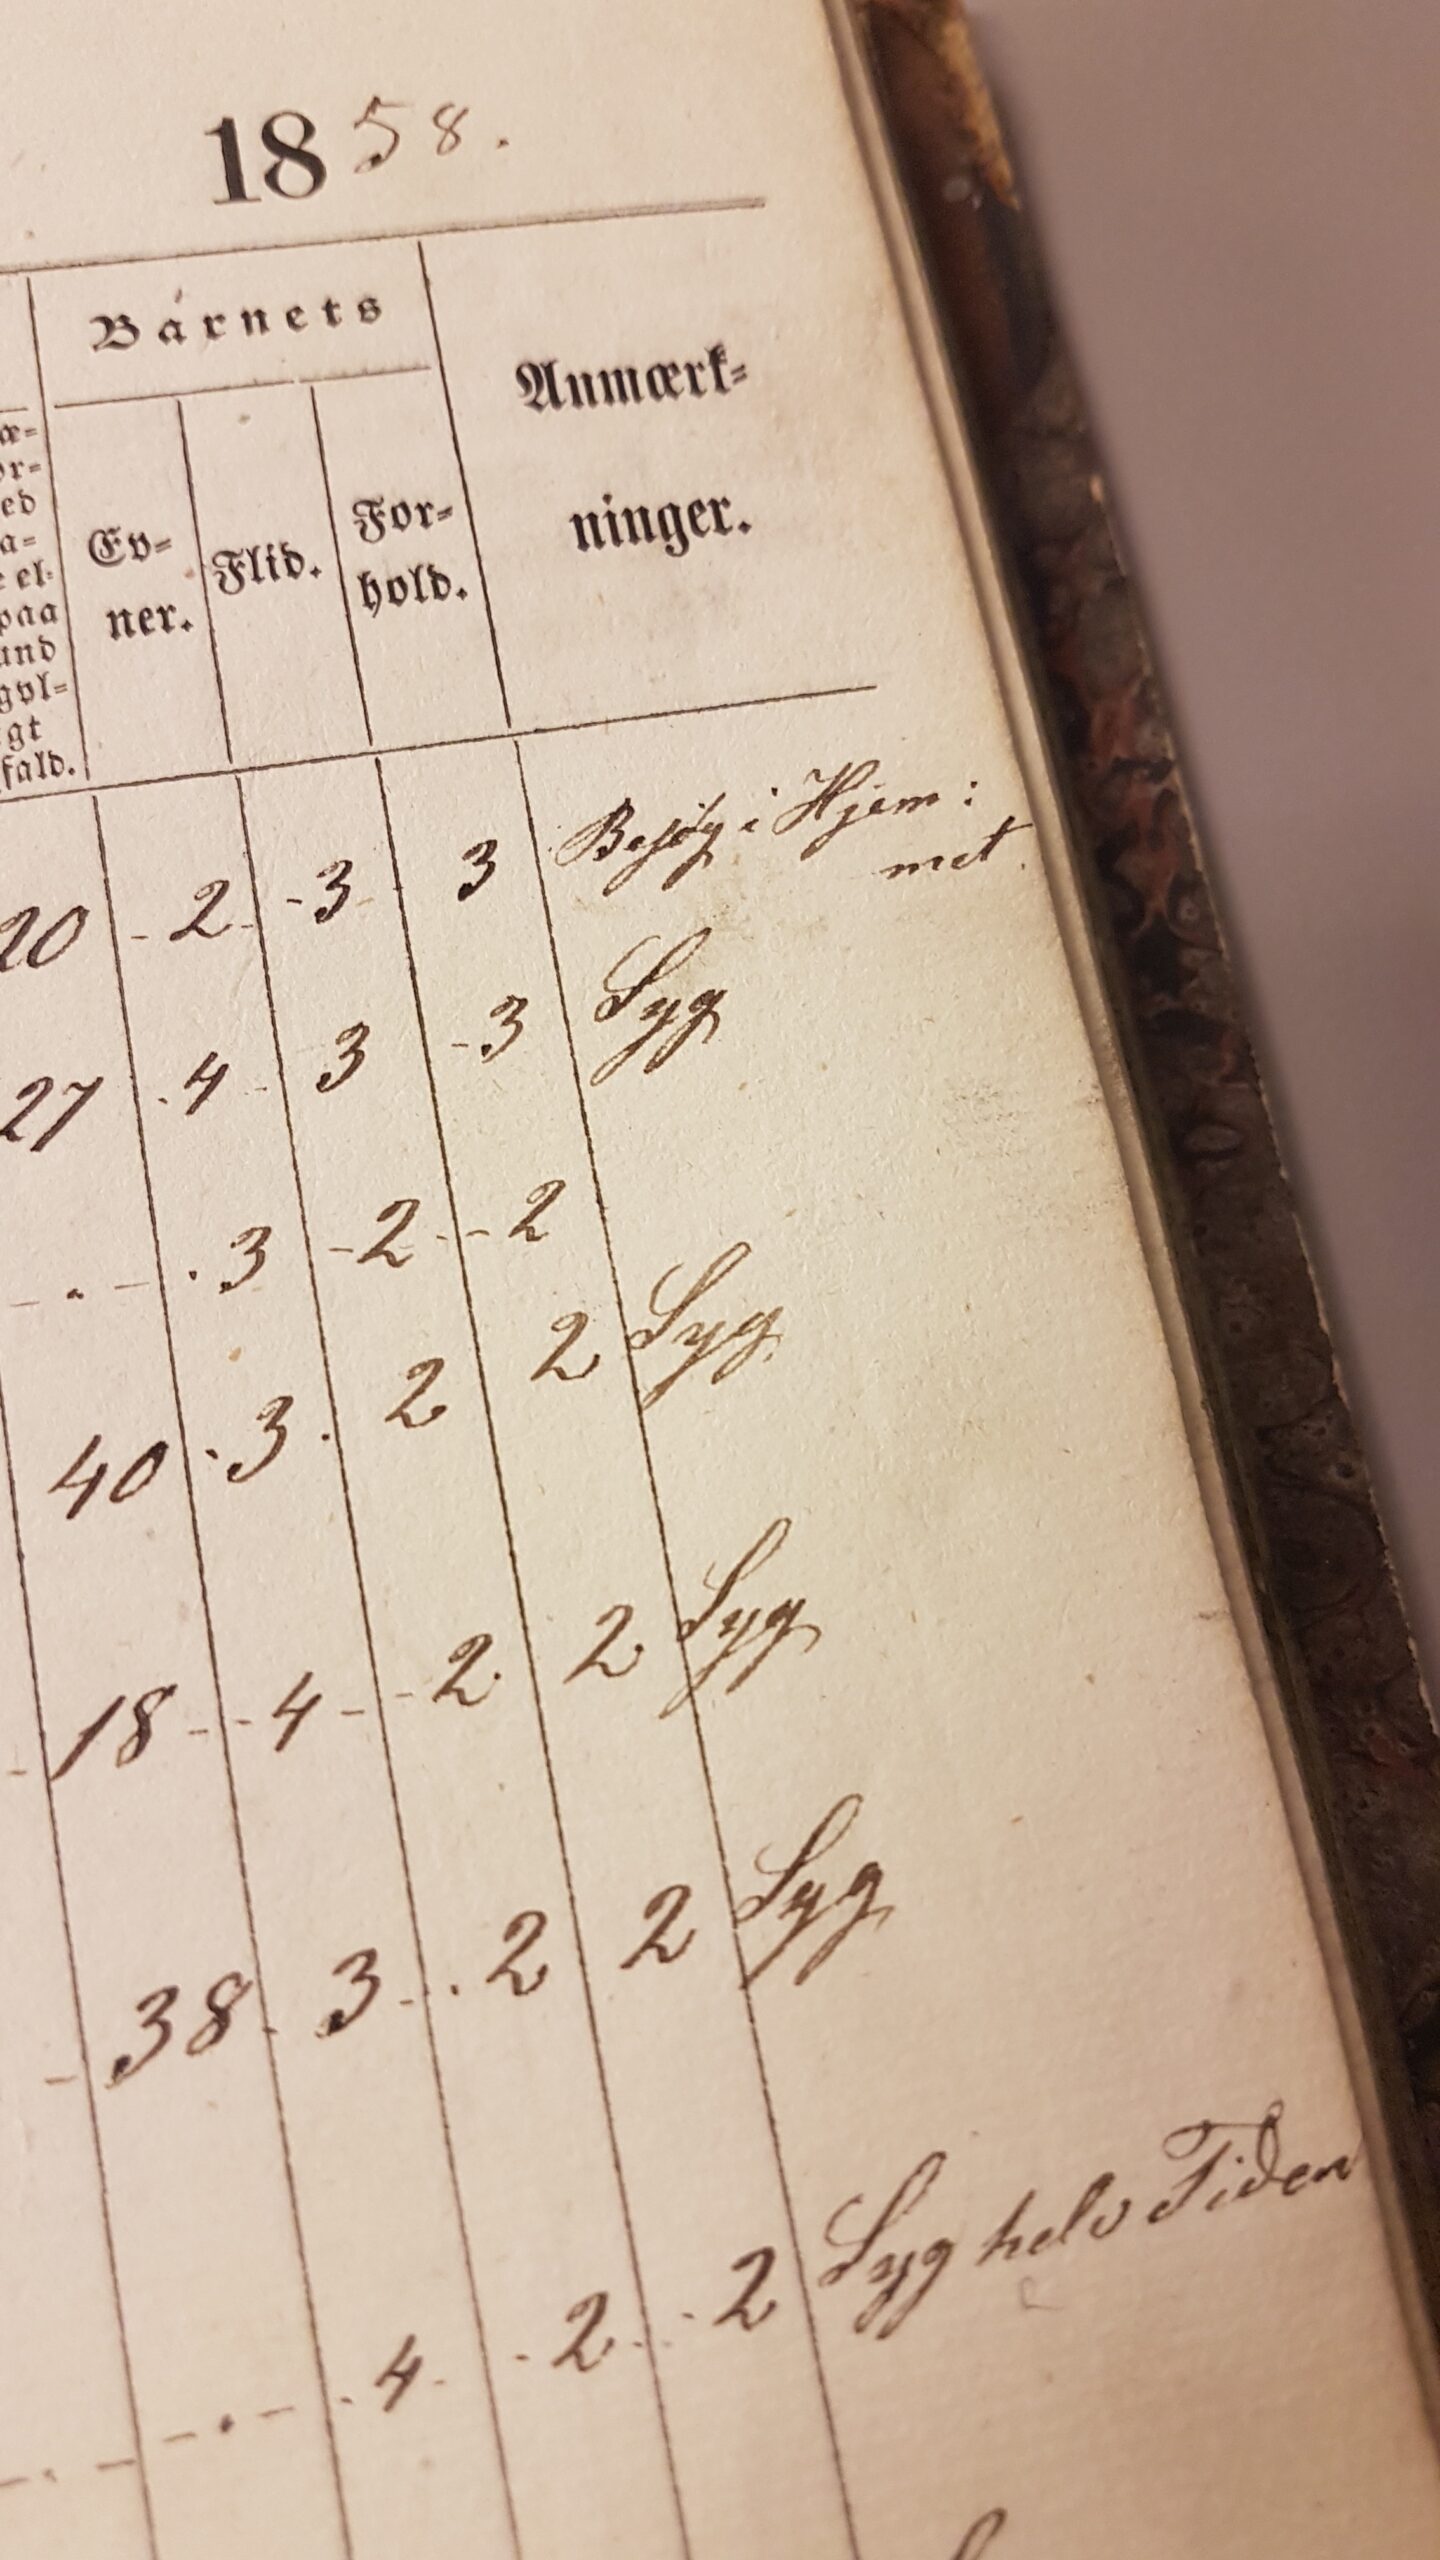 1858.
Barnets
Anmærk-
ninger.
Ev-
ner.
Flid.
For-
hold.
æ-
or-
ed
a-
e el-
paa
und
gyl-
gt
fald.
20 - 2 - - 3 - 3 Besøg i Hjem:
met.
27 . 4 - 3 - 3 Syg
- . - . 3 - 2 - - 2
40 . 3 . 2 2 Syg.
- 18 - - 4 - - 2 . 2 Syg
- 38 . 3 - . 2 2 Syg
- . - - . - . 4 - - 2 - . 2 Syg hele Tiden